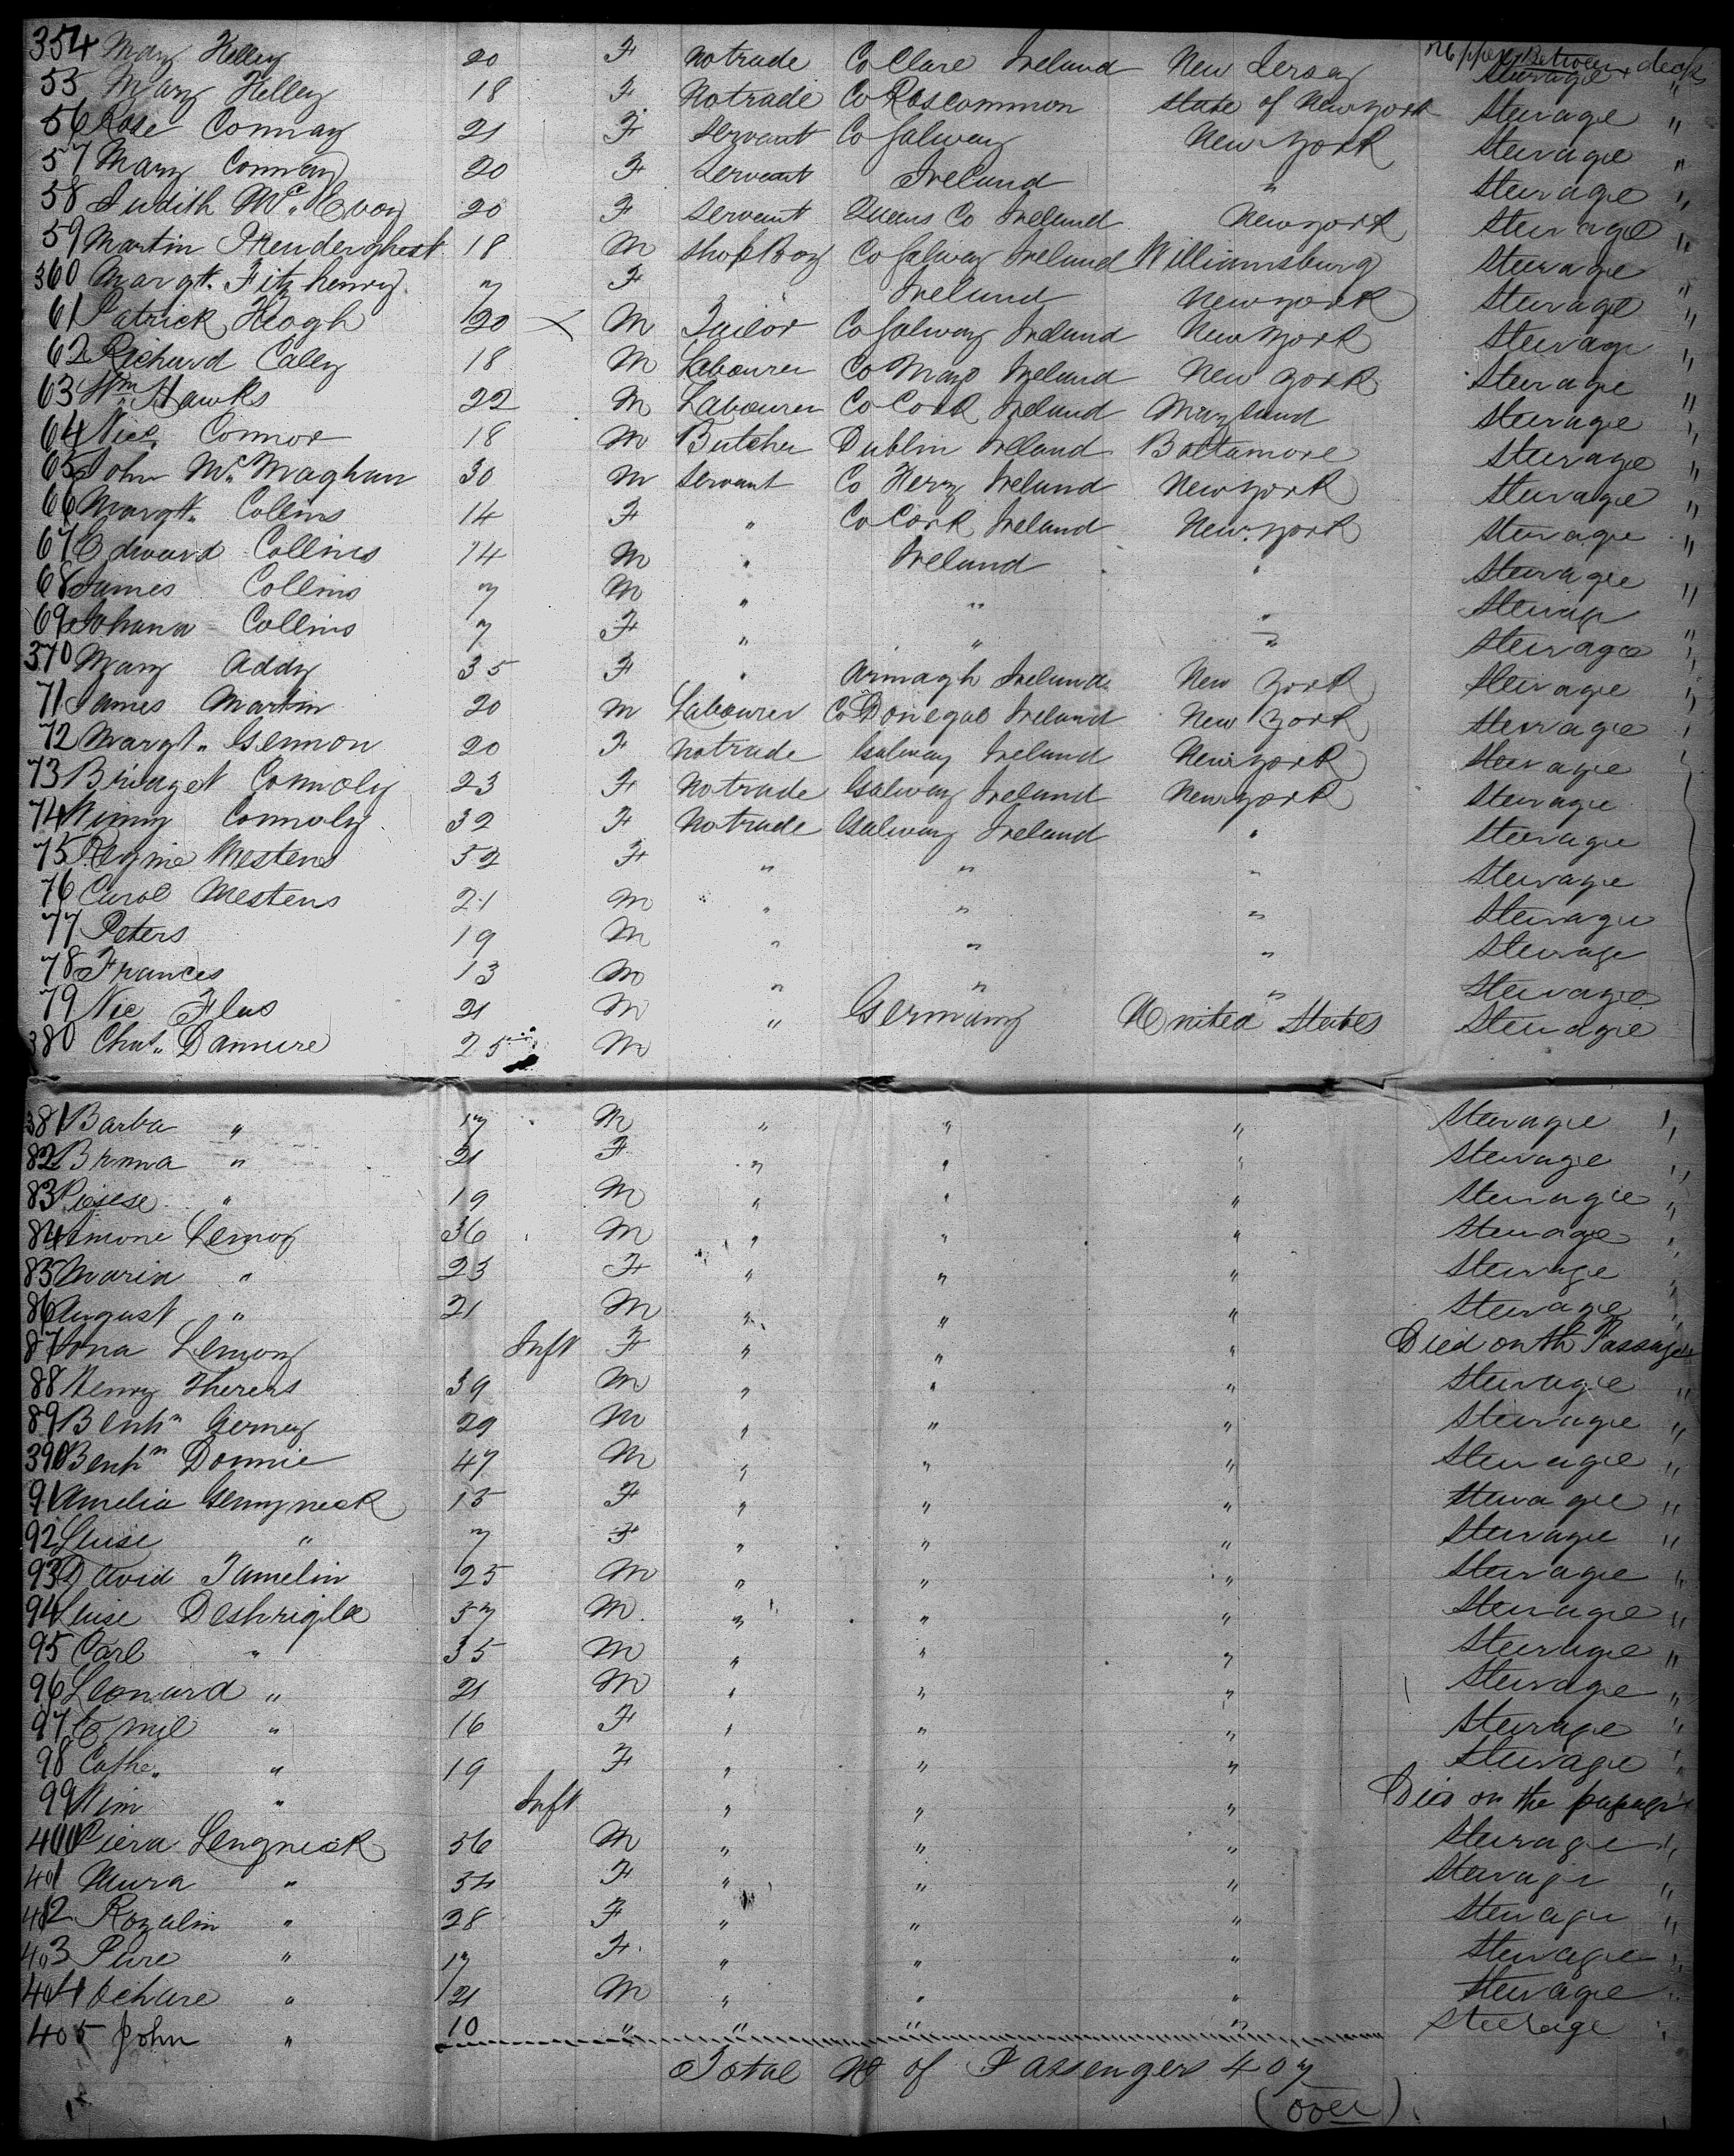 354 Mary Kelley 20 F no trade Co Clare Ireland New Jersey Upper Between decks Steerage "
55 Mary Kelley 18 F No trade Co Roscommon State of New York Steerage "
56 Rose Conway 21 F Servant Co Galway New York Steerage "
57 Mary Conway 20 F Servant Ireland " Steerage "
58 Judith Mc Evoy 20 F Servant Queens Co Ireland New York Steerage "
59 Martin Prenderghest 18 M Shop Boy Co Galway Ireland Williamsburg Steerage "
360 Margt. Fitz henry 7 F Ireland New York Steerage "
61 Patrick Keogh 20 X M Tailor Co Galway Ireland New York Steerage "
62 Richard Caley 18 M Labourer Co Mayo Ireland New York Steerage "
63 Wm Hawks 22 M Labourer Co Cork Ireland Maryland Steerage "
64 Nics. Connor 18 M Butcher Dublin Ireland Baltamore Steerage "
65 John Mc Maghan 30 M Servant Co Kery Ireland New York Steerage "
66 Margt. Collins 14 F " Co Cork Ireland New York Steerage "
67 Edward Collins 14 M " Ireland " Steerage "
68 James Collins 7 M " " " Steerage
69 Johana Collins 7 F " " " Steerage "
370 Mary Addy 35 F " Armagh Ireland New York Steerage "
71 James Martin 20 M Labourer Co Donegal Ireland New York Steerage "
72 Margt. Gennon 20 F no trade Galway Ireland New York Steerage
73 Bridaget Connoly 23 F No trade Galway Ireland New York Steerage
74 Winny Connoly 32 F No trade Galway Ireland " Steerage
75 Regine Mestens 52 F " " " Steerage
76 Carol Mestens 21 M " " " Steerage
77 Peters 19 M " " " Steerage
78 Frances 13 M " " " Steerage
79 Nic Flas 21 M " Germany United States Steerage
380 Chas. Dannere 25 M
381 Barba " 17 M " " " Steerage "
82 Brnna " 21 F " " " Steerage "
83 " 19 M " " " Steerage "
84 Simone Lemoy 36 M " " " Steerage "
85 Maria " 23 F " " " Steerage "
86 August " 21 M " " " Steerage "
87 Anna Lemony Inft F " " " Died on th Passage
88 Henry Therens 39 M " " " Steerage "
89 Benhn Gerney 29 M " " " Steerage "
390 Benhn Donnie 47 M " " " Steerage "
91 Amelia Gennyneck 15 F " " " Steerage "
92 Luise " 7 F " " " Steerage "
93 David Tamelin 25 M " " " Steerage "
94 Luise Deshrigle 37 M " " " Steerage "
95 Carl " 35 M " " " Steerage "
96 Leonard " 21 M " " " Steerage "
97 Emil " 16 F " " " Steerage "
98 Cathe. " 19 F " " " Steerage "
99 Wim " Inft " " " Died on the passage
400 Piera Lengneck 56 M " " " Steerage "
401 Mura " 54 F " " " Steerage "
402 Rozalin " 28 F " " " Steerage "
403 Pure " 17 F " " " Steerage "
404 " 21 M " " " Steerage "
405 John " 10 " " " " Steerage "
Total No of Passengers 407
(over)